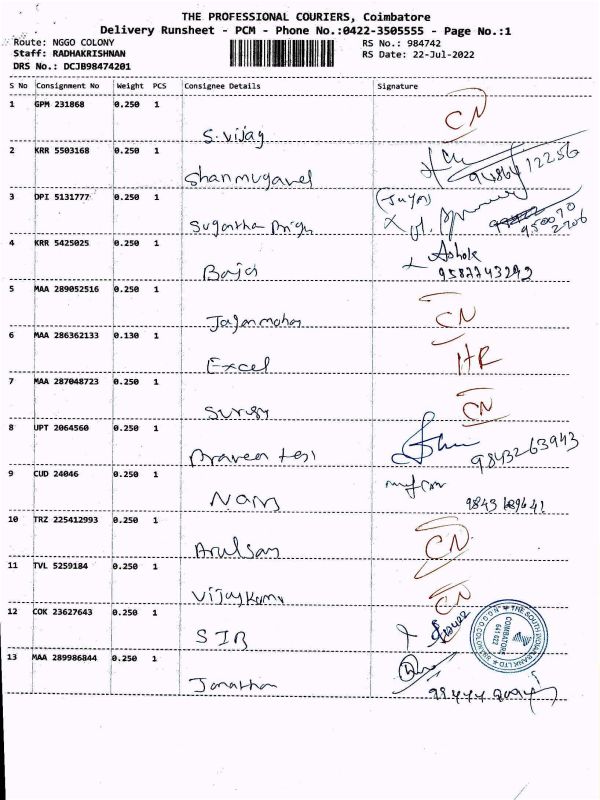 THE PROFESSIONAL COURIERS, Coimbatore
Delivery Runsheet - PCM - Phone No.:0422-3505555 - Page No.:1
Route: NGGO COLONY RS No.: 984742
Staff: RADHAKRISHNAN RS Date: 22-Jul-2022
DRS No.: DCJB98474201
S No Consignment No Weight PCS Consignee Details Signature
1 GPM 231868 0.250 1 CN
S.vijay
2 KRR 5503168 0.250 1
Shanmugavel
3 DPI 5131777 0.250 1
4 KRR 5425025 0.250 1 Ashok
5 MAA 289052516 0.250 1 CN
Jaganmohan
6 MAA 286362133 0.130 1 HR
Excel
7 MAA 287048723 0.250 1 CN
8 UPT 2064560 0.250 1 9843263943
Praveen
9 CUD 24046 0.250 1
10 TRZ 225412993 0.250 1 CN
11 TVL 5259184 0.250 1 CN
Vijaykumar
12 COK 23627643 0.250 1
SIB
THE SOUTH INDIAN BANK LTD
COIMBATORE
641 022
13 MAA 289986844 0.250 1
Jonathan